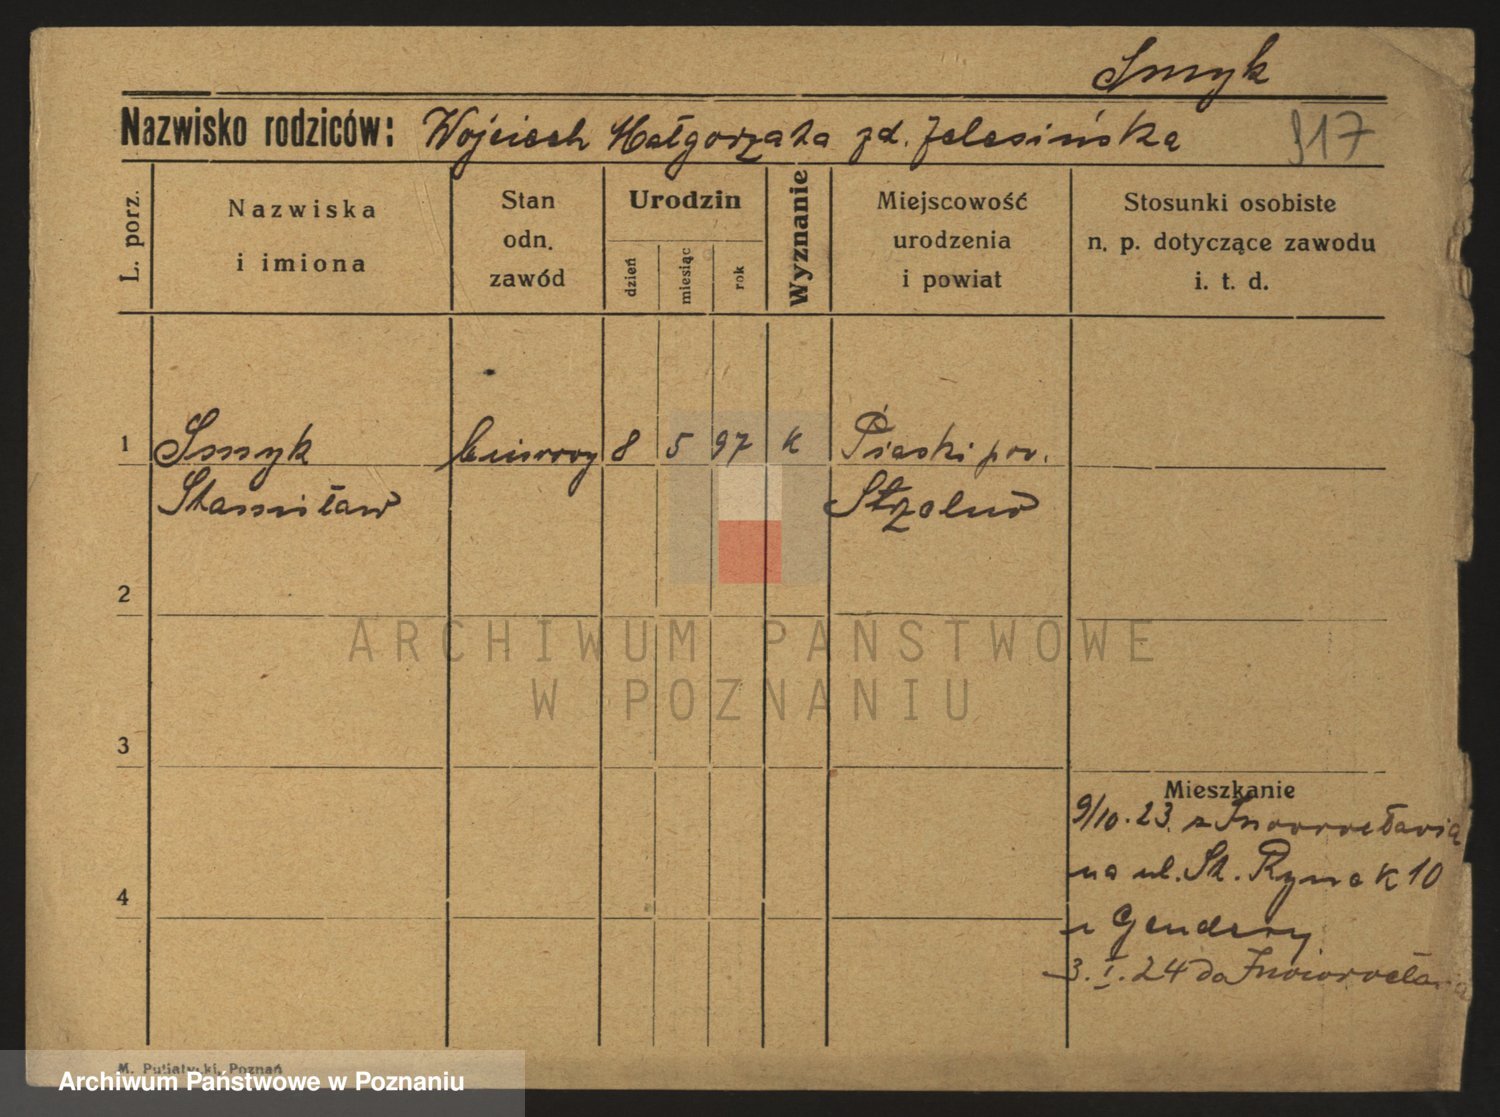 Smyk
Nazwisko rodziców: Wojciech Małgorzata zd. Jelesińska 917
L. porz.
Nazwiska
i imiona
Stan
odn.
zawód
Urodzin
dzień
miesiąc
rok
Wyznanie
Miejscowość
urodzenia
i powiat
Stosunki osobiste
n. p. dotyczące zawodu
i. t. d.
1 Smyk biurowy 8 5 97 K Piaski pow.
Stanisław Strzelno
2
ARCHIWUM PAŃSTWOWE
W POZNANIU
3
Mieszkanie
9/10.23. z Inowrocławia
na ul. St. Rynek 10
u Gendery
4
3.I.24 do Inowrocławia
M. Putiatycki, Poznań
Archiwum Państwowe w Poznaniu